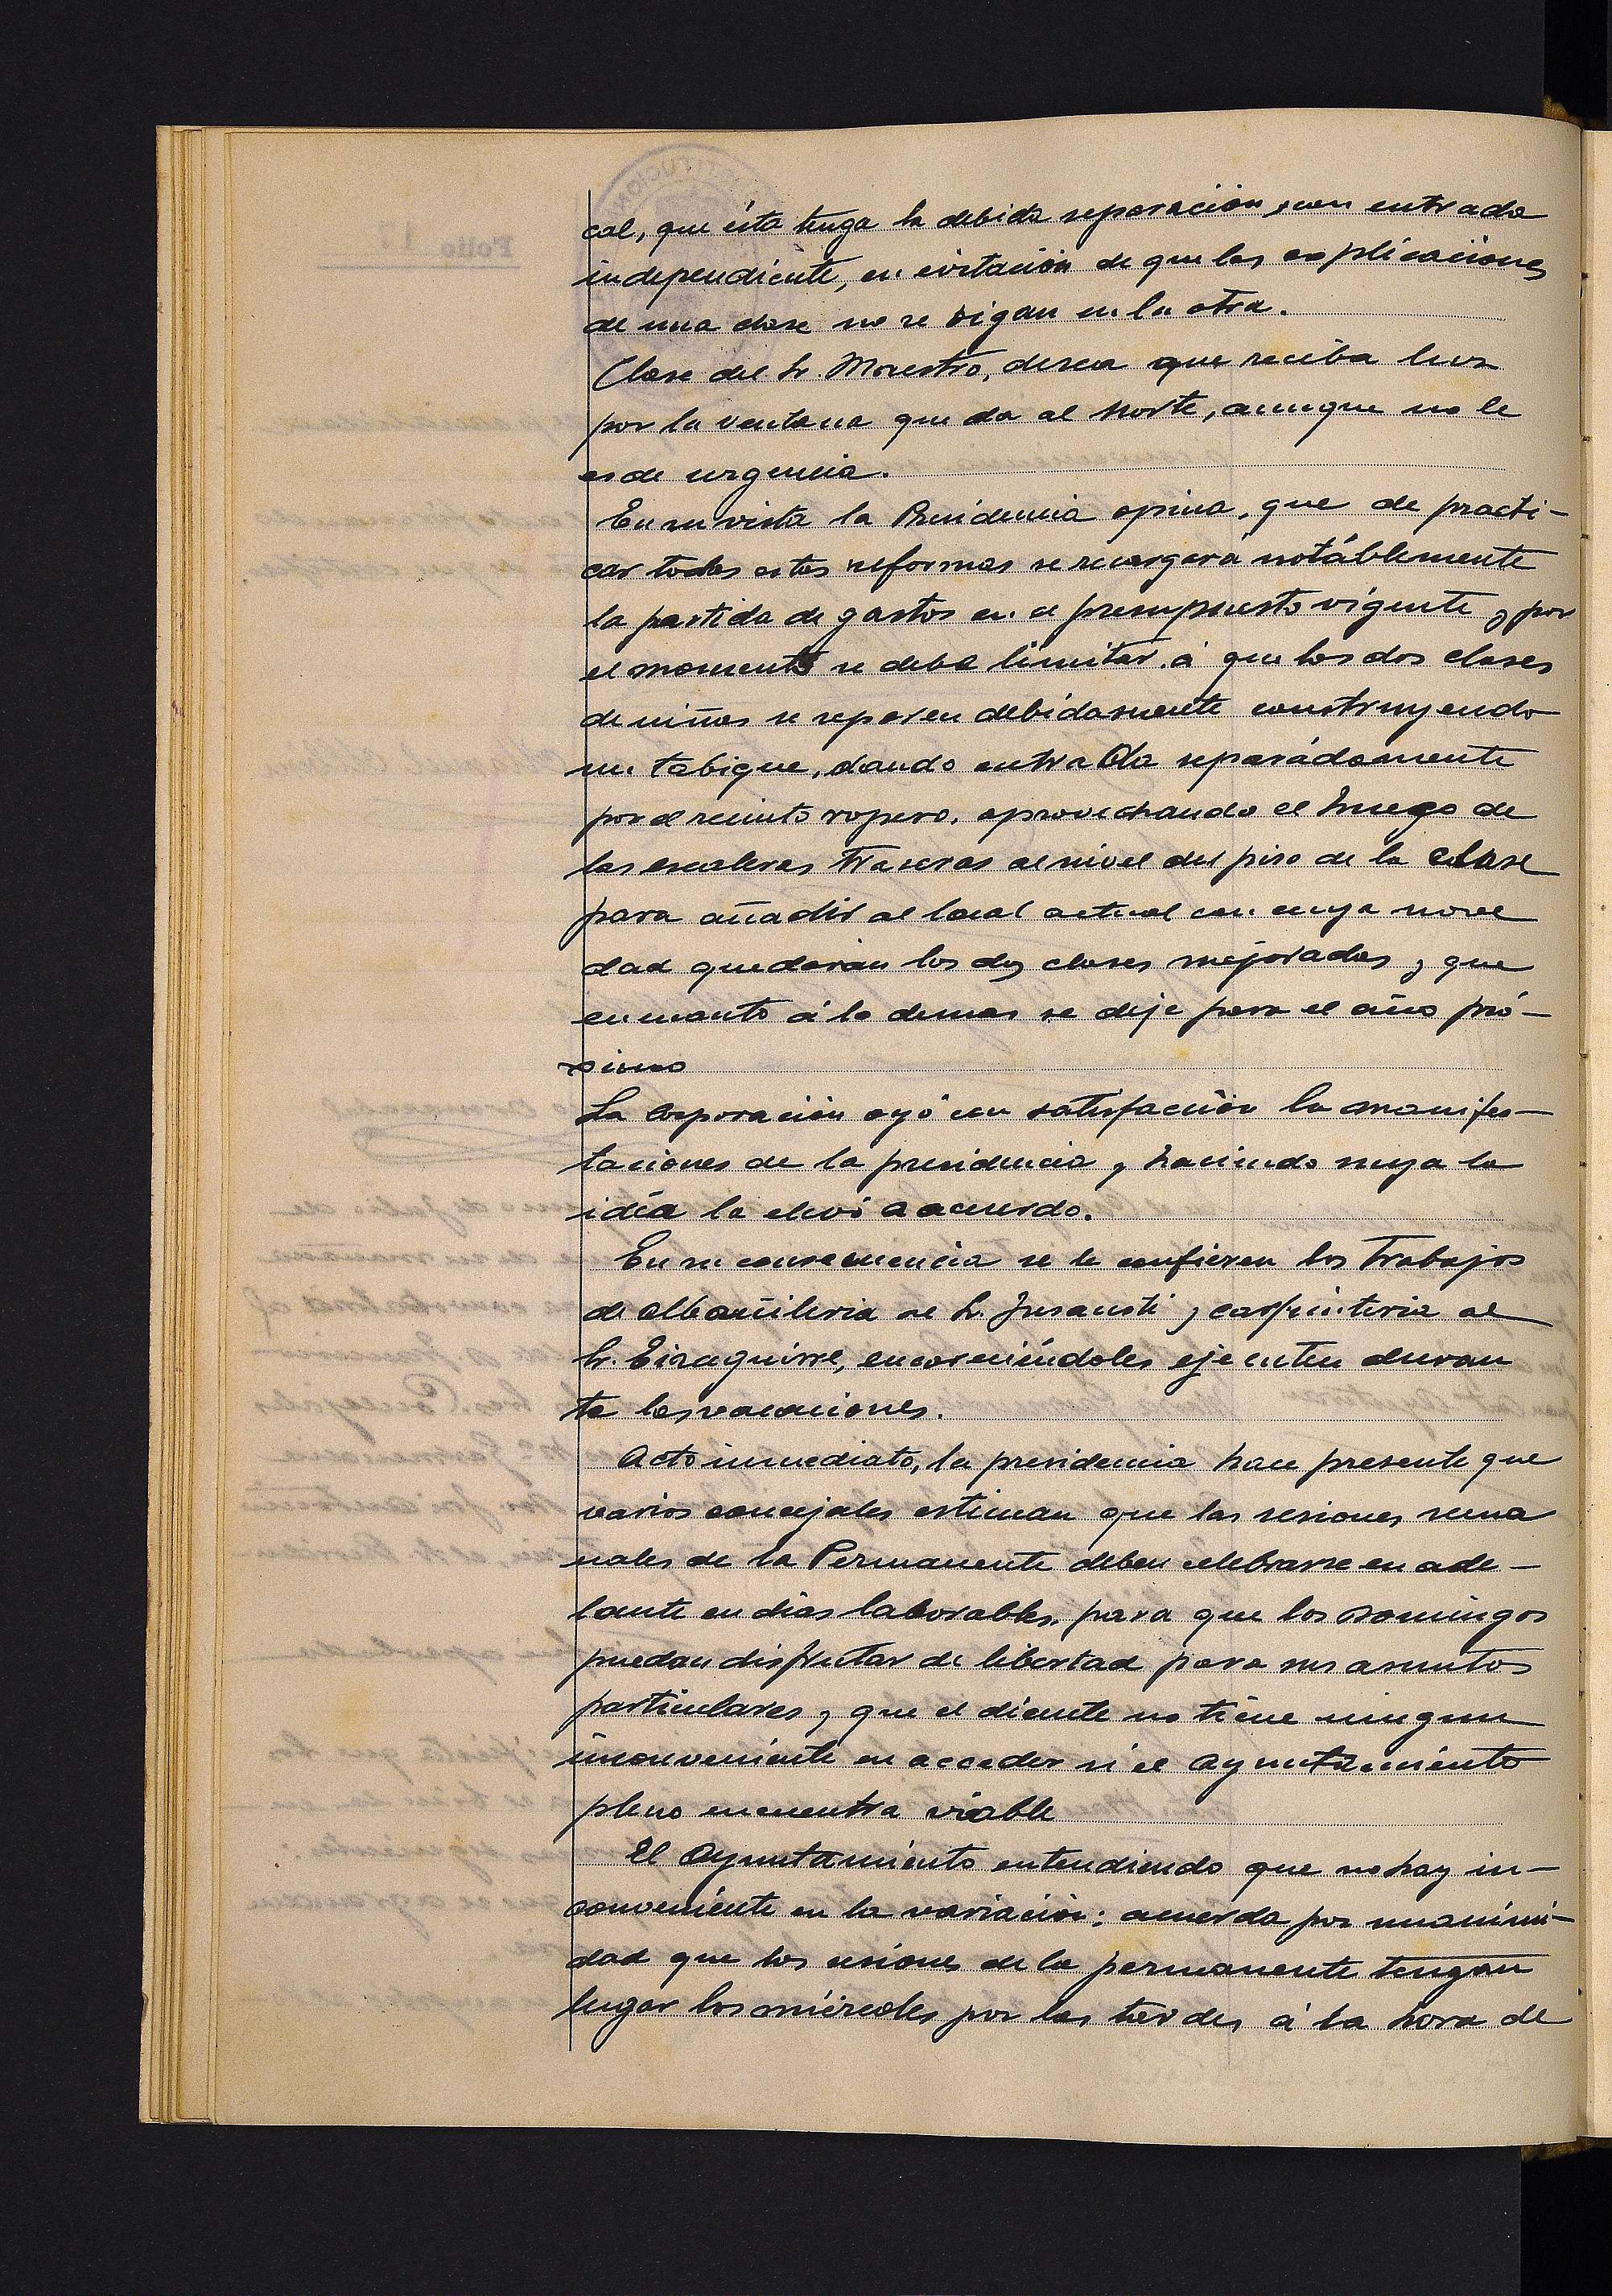 cal, que ésta tenga la debida separación, con entrada
independiente, en evitación de que las explicaciones
de una clase no se oigan en la otra.
Clase del Sr. Maestro, desea que reciba luz
por la ventana que da al Norte, aunque no le
es de urgencia.
En su vista la Presidencia opina, que de practi-
car todas estas reformas se recargará notáblemente
la partida de gastos en el presupuesto vigente y por
el momento se debe limitar á que las dos clases
de niñas se separen debidamente construyendo
un tabique, dando entrada separádamente
por el recinto ropero, aprovechando el hueco de
las escaleras traseras al nivel del piso de la clase
para añadir al local actual con cuya nove
dad quedarán las dos clases mejoradas y que
en cuanto á lo demas se deje para el año pró-
ximo
La Corporación oyó con satisfacción la manifes-
taciones de la presidencia y haciendo suya la
idéa la elevó a acuerdo.
En su consecuencia se le confieren los trabajos
de albañileria al Sr. Jusausti y carpinteria al
Sr. Eizaguirre, encareciéndoles ejecuten duran
te las vacaciones.
Acto inmediato, la presidencia hace presente que
varios concejales estiman que las sesiones sema
nales de la Permanente deben celebrarse en ade-
lante en dias laborables, para que los Domingos
puedan disfrutar de libertad para sus asuntos
particulares y que el dicente no tiene ningun
inconveniente en acceder si el Ayuntamiento
pleno encuentra viable
El Ayuntamiento entendiendo que no hay in-
conveniente en la variación; acuerda por unanimi-
dad que las sesiones de la permanente tengan
lugar los miércoles por las tardes á la hora de